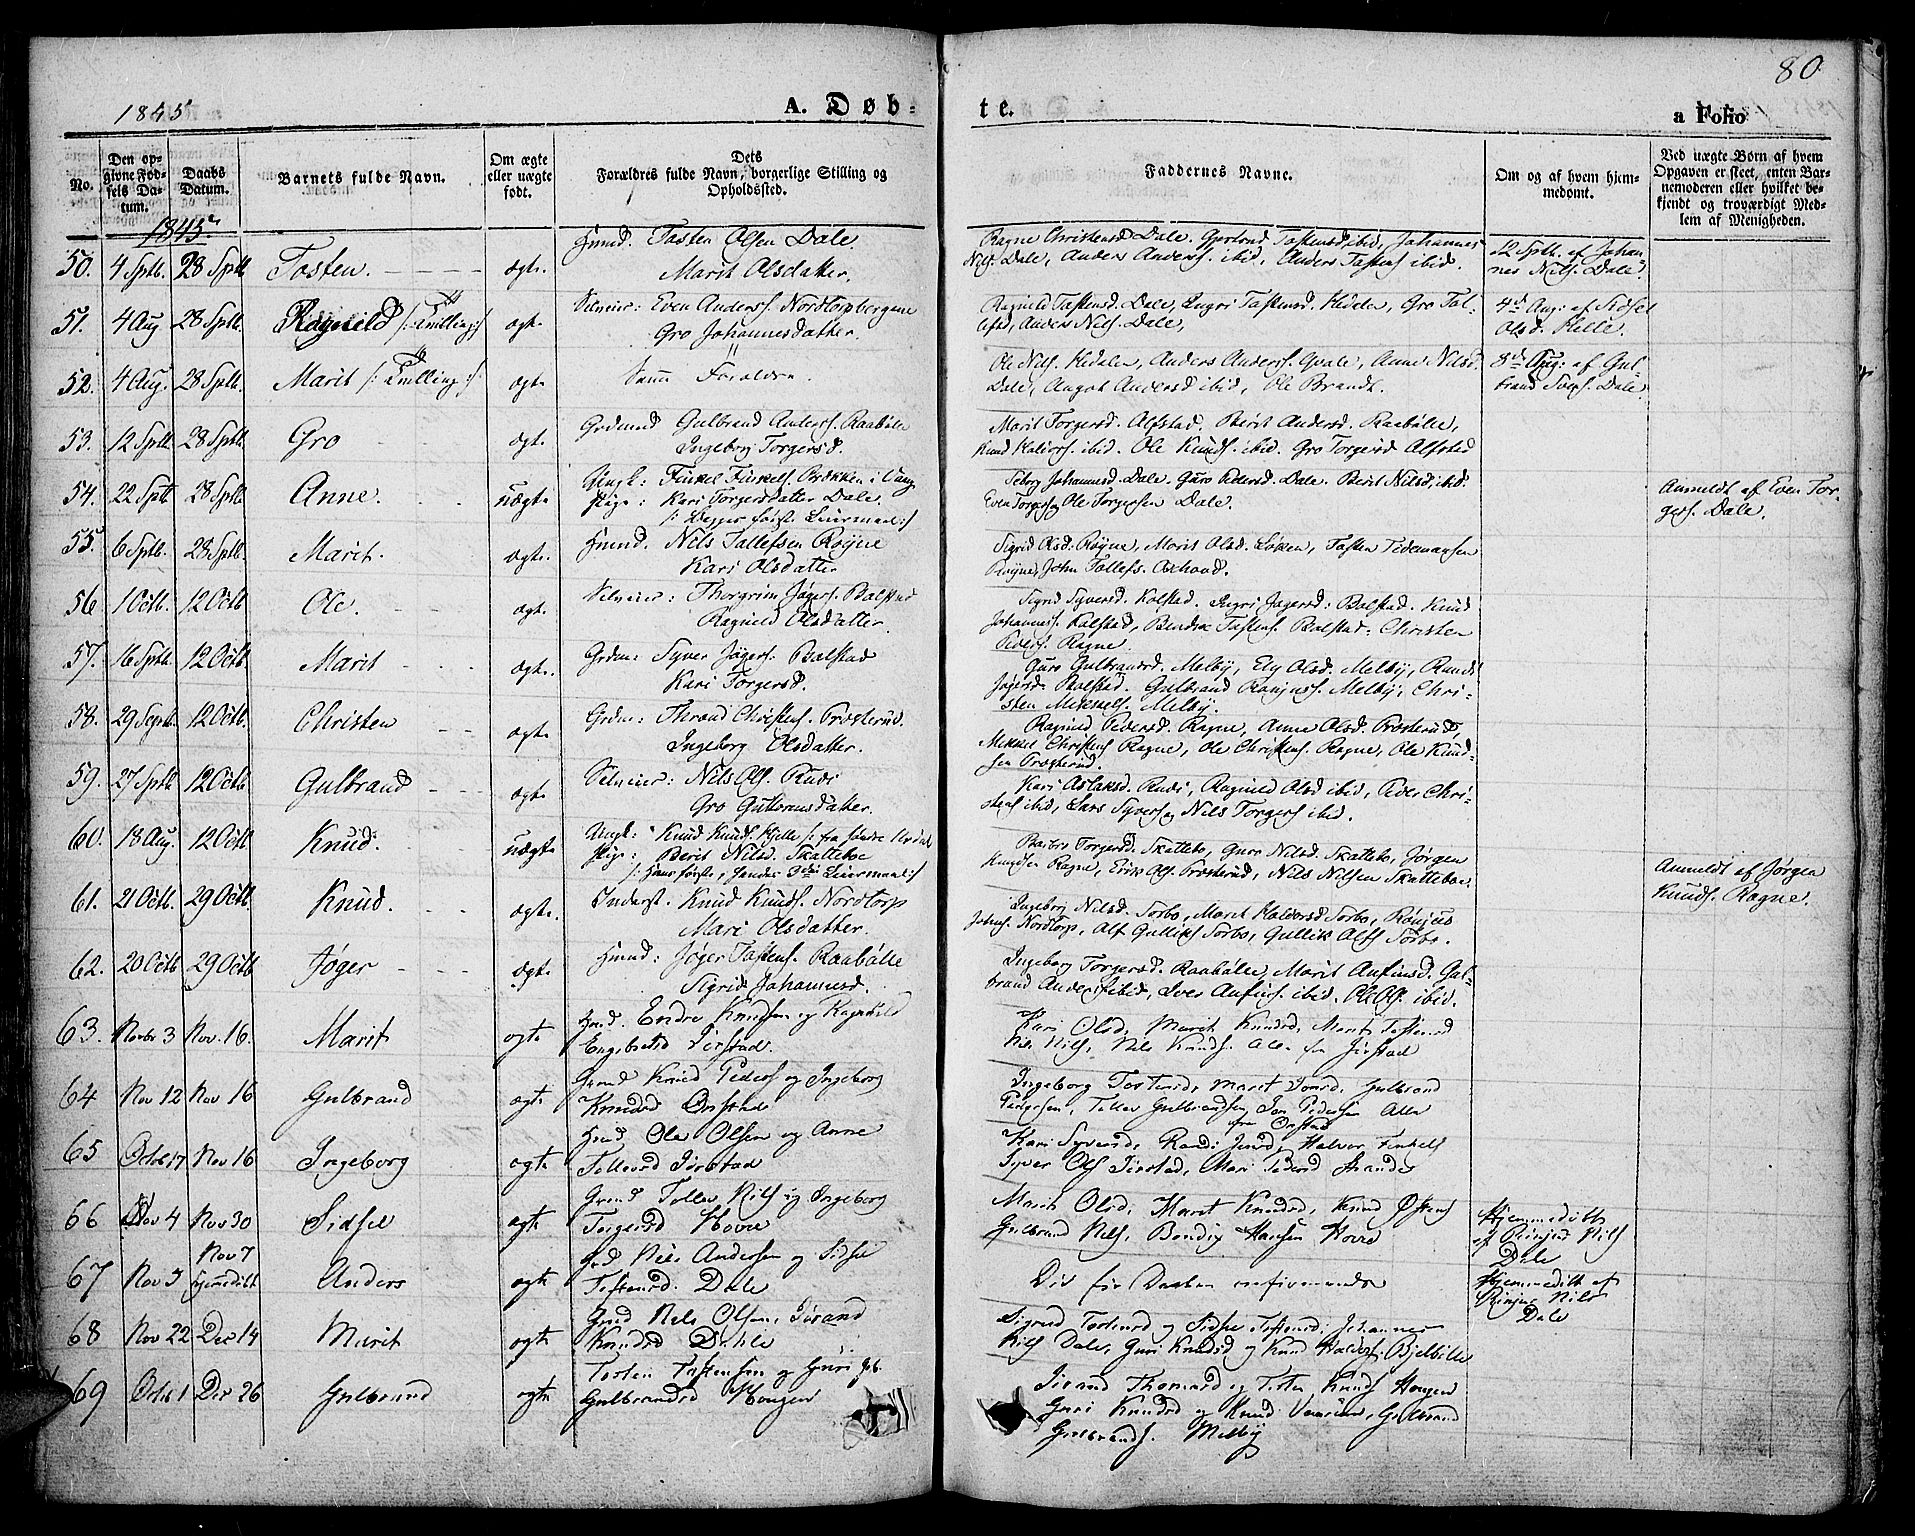 80.
1845
A. Døb-
te.
a Folio
No.
Den op-
givne Fød-
sels Da-
tum.
Daabs
Datum.
Barnets fulde Navn.
Om ægte
eller uægte
født.
Dets
Forældres fulde Navn, borgerlige Stilling og
Opholdssted.
Faddernes Navne.
Om og af hvem hjem-
medømt.
Ved uægte Børn af hvem
Opgaven er skeet, enten Bar-
nemoderen eller hvilket be-
kjendt og troværdigt Med-
lem af Menigheden.
1845
50. 4 Sptb. 28 Sptb. Tosten. ægte. Huusmd. Tosten Olsen Dale
Marit Olsdatter.
Ragne Christensd Dale. Tostensd ibid, Johannes
Nils. Dale, Anders Anders. ibid, Anders Tostens ibid.
12 Sptb. af Johan-
nes Nils. Dale.
51. 4 Aug 28 Sptb. Ragnild /: Tvilling :/ ægte Selveier: Even Anders. Nordtorpbergene
Gro Johannesdatter.
Ragnild Tostensd. Dale, Ingri Tostensd. Hedalen, Gro Tol-
lefsd, Anders Nils. Dale,
4de Aug: af Sidsel
Olsd. Helle.
52. 4 Aug. 28 Sptb. Marit /: Tvilling :/ ægte Samme Forældre.
Ole Nils. Hedalen, Anders Anders. Qvale, Anne Nilsd.
Dale, Angot Andersd ibid, Ole Brandt.
8de Aug: af Gul-
brand Dale.
53. 12 Sptb. 28 Sptb. Gro ægte. Grdmand Gulbrand Anders. Raabølle
Ingeborg Torgersd.
Marit Torgersd. Alfstad, Berit Andersd. Raabølle,
Knud Haldors. ibid. Ole Knuds. ibid. Gro Torgersd Alfstad
54. 22 Sptb 28 Sptb. Anne. uægte Ungk: Finkel Finkels. Bækken i Vang
Pige: Kari Torgersdatter Dale.
/: Begges første Leiermaal :/
Johannesd. Dale, Guro Pedersd. Dale. Berit Nilsd. ibid.
Even Torgers og Ole Torgersen Dale.
Anmeldt af Even Tor-
gers. Dale,
55. 6 Sptb. 28 Sptb. Marit. ægte. Huusmd. Nils Tollefsen Røyne
Kari Olsdatter
Sigrid Olsd. Røyne, Marit Olsd. Løken, Tosten Tidemansen
Røyne, John Tollefs.
56 1 Octb. 12 Octb Ole. ægte. Selveier: Thorgrim Jøgers. Bolstad
Ragnild Olsdatter.
Sigrid Syversd. Kolstad, Ingri Jøgersd: Bolstad. Knud
Johannes. Kolstad, Tostens. Bolstad. Christen
Peders. Ragne.
57. 16 Sptb. 12 Octb. Marit ægte. Grdm: Syver Jøgers. Bolstad
Kari Torgersd.
Guro Gulbrandsd. Melby, Ely Olsd. Melby, Randi
Jøgersd. Bolstad. Gulbrand Melby, Chri-
sten Mikkels. Melby.
58. 29 Septb. 12 Octb. Christen ægte. Grdm: Thrond Christens. Prosterud.
Ingeborg Olsdatter.
Ragnild Pedersd. Ragne, Anne Olsd. Prosterud,
Mikkel Christens Ragne, Ole Christens. Ragne, Ole Knud-
sen Prosterud.
59. 27 Sptb 12 Octb Gulbrand ægte Selveier: Nils Ols. Rudi
Gro Guttormsdatter.
Kari Aslaksd. Rudi, Ragnild Olsd ibid, Peder Chri-
stens ibid, Lars Syvers og Nils Torgers ibid.
60. 18 Aug. 12 Octb Knud. uægte Ungk: Knud Knuds. Hjelle /: fra Søndre
Pige: Berit Nilsd. Skattebøe
/: Hans første, hendes 3die Leiermaal :/
Torgersd. Skattebo, Guro Nilsd. Skattebo, Jørgen
Knudsen Ragne, Erik Ols. Prosterud, Nils Nilsen Skatteboe.
Anmeldt af Jørgen
Knuds. Ragne.
61. 21 Octb. 29 Octb. Knud. ægte. Inderst. Knud Knuds. Nordtorp
Mari Olsdatter.
Ingeborg Nilsd. Sorbo, Marit Haldorsd Sorbo,
Johns. Nordtorp, Alf Gulliks Sorbo, Gullik Alfs Sorbo.
62. 20 Octb 29 Octb Jøger ægte Huusmd: Jøger Tostens. Raabølle
Sigrid Johannesd.
Ingeborg Torgersd. Raabølle, Marit Anfinsd. Gul-
brand Anders ibid, Iver Anfins. ibid. Ole Ols. ibid.
63. Novbr 3 Nov. 16. Marit ægte Endre Knudsen og Ragnhild
Engebretsd Jørstad.
Kari Olsd, Marit Knudsd, Marit Tostensd
Nils, Nils Knuds. Alle fra Jørstad
64 Nov 12 Nov 16 Gulbrand ægte Knud Peders og Ingeborg
Knudsd Onstad
Ingeborg Tostensd, Marit Gulbrand
Tollev Gulbrandsen Pedersen Alle
fra Onstad
65 Octob 17 Nov 16 Ingeborg ægte Ole Olsen og Anne
Tollevsd Jørstad
Kari Syversd, Randi Halvor Finkels
Syver Ols Jørstad, Mari Strande
66 Nov 4 Nov 30 Sidsel ægte Tollev Nils og Ingeborg
Torgersd Hovre
Marit Olsd, Marit Knudsd, Knud
Gulbrand Nils, Bendig Hansen Hovre
Hjemmedøbt
af Nils
Dale
67 Nov 3 Nov 7
Hjemmedøbt Anders ægte Nils Andersen og Sidsel
Tostensd. Dale
før Daaben
Hjemmedøbt af
Nils
Dale
68 Nov 22 Dec 14 Marit ægte Nils Olsen, Jørand
Knudsd Dale
Sigrid Tostensd og Sidsel Tostensd: Johannes
Nils Dale, Guri Knudsd og Knud
69 Octb 1 Dec 26 Gulbrand ægte Tosten Tostensen og Guri
Gulbrandsd Haugen
Jørand Thomasd og Tosten Knuds Haugen
Guri Knudsd og Knud Gulbrand
Gulbrands. Melby